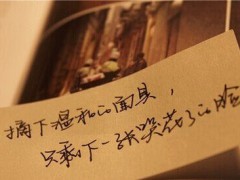 摘下温和的面具，
只剩下一张哭花了的脸